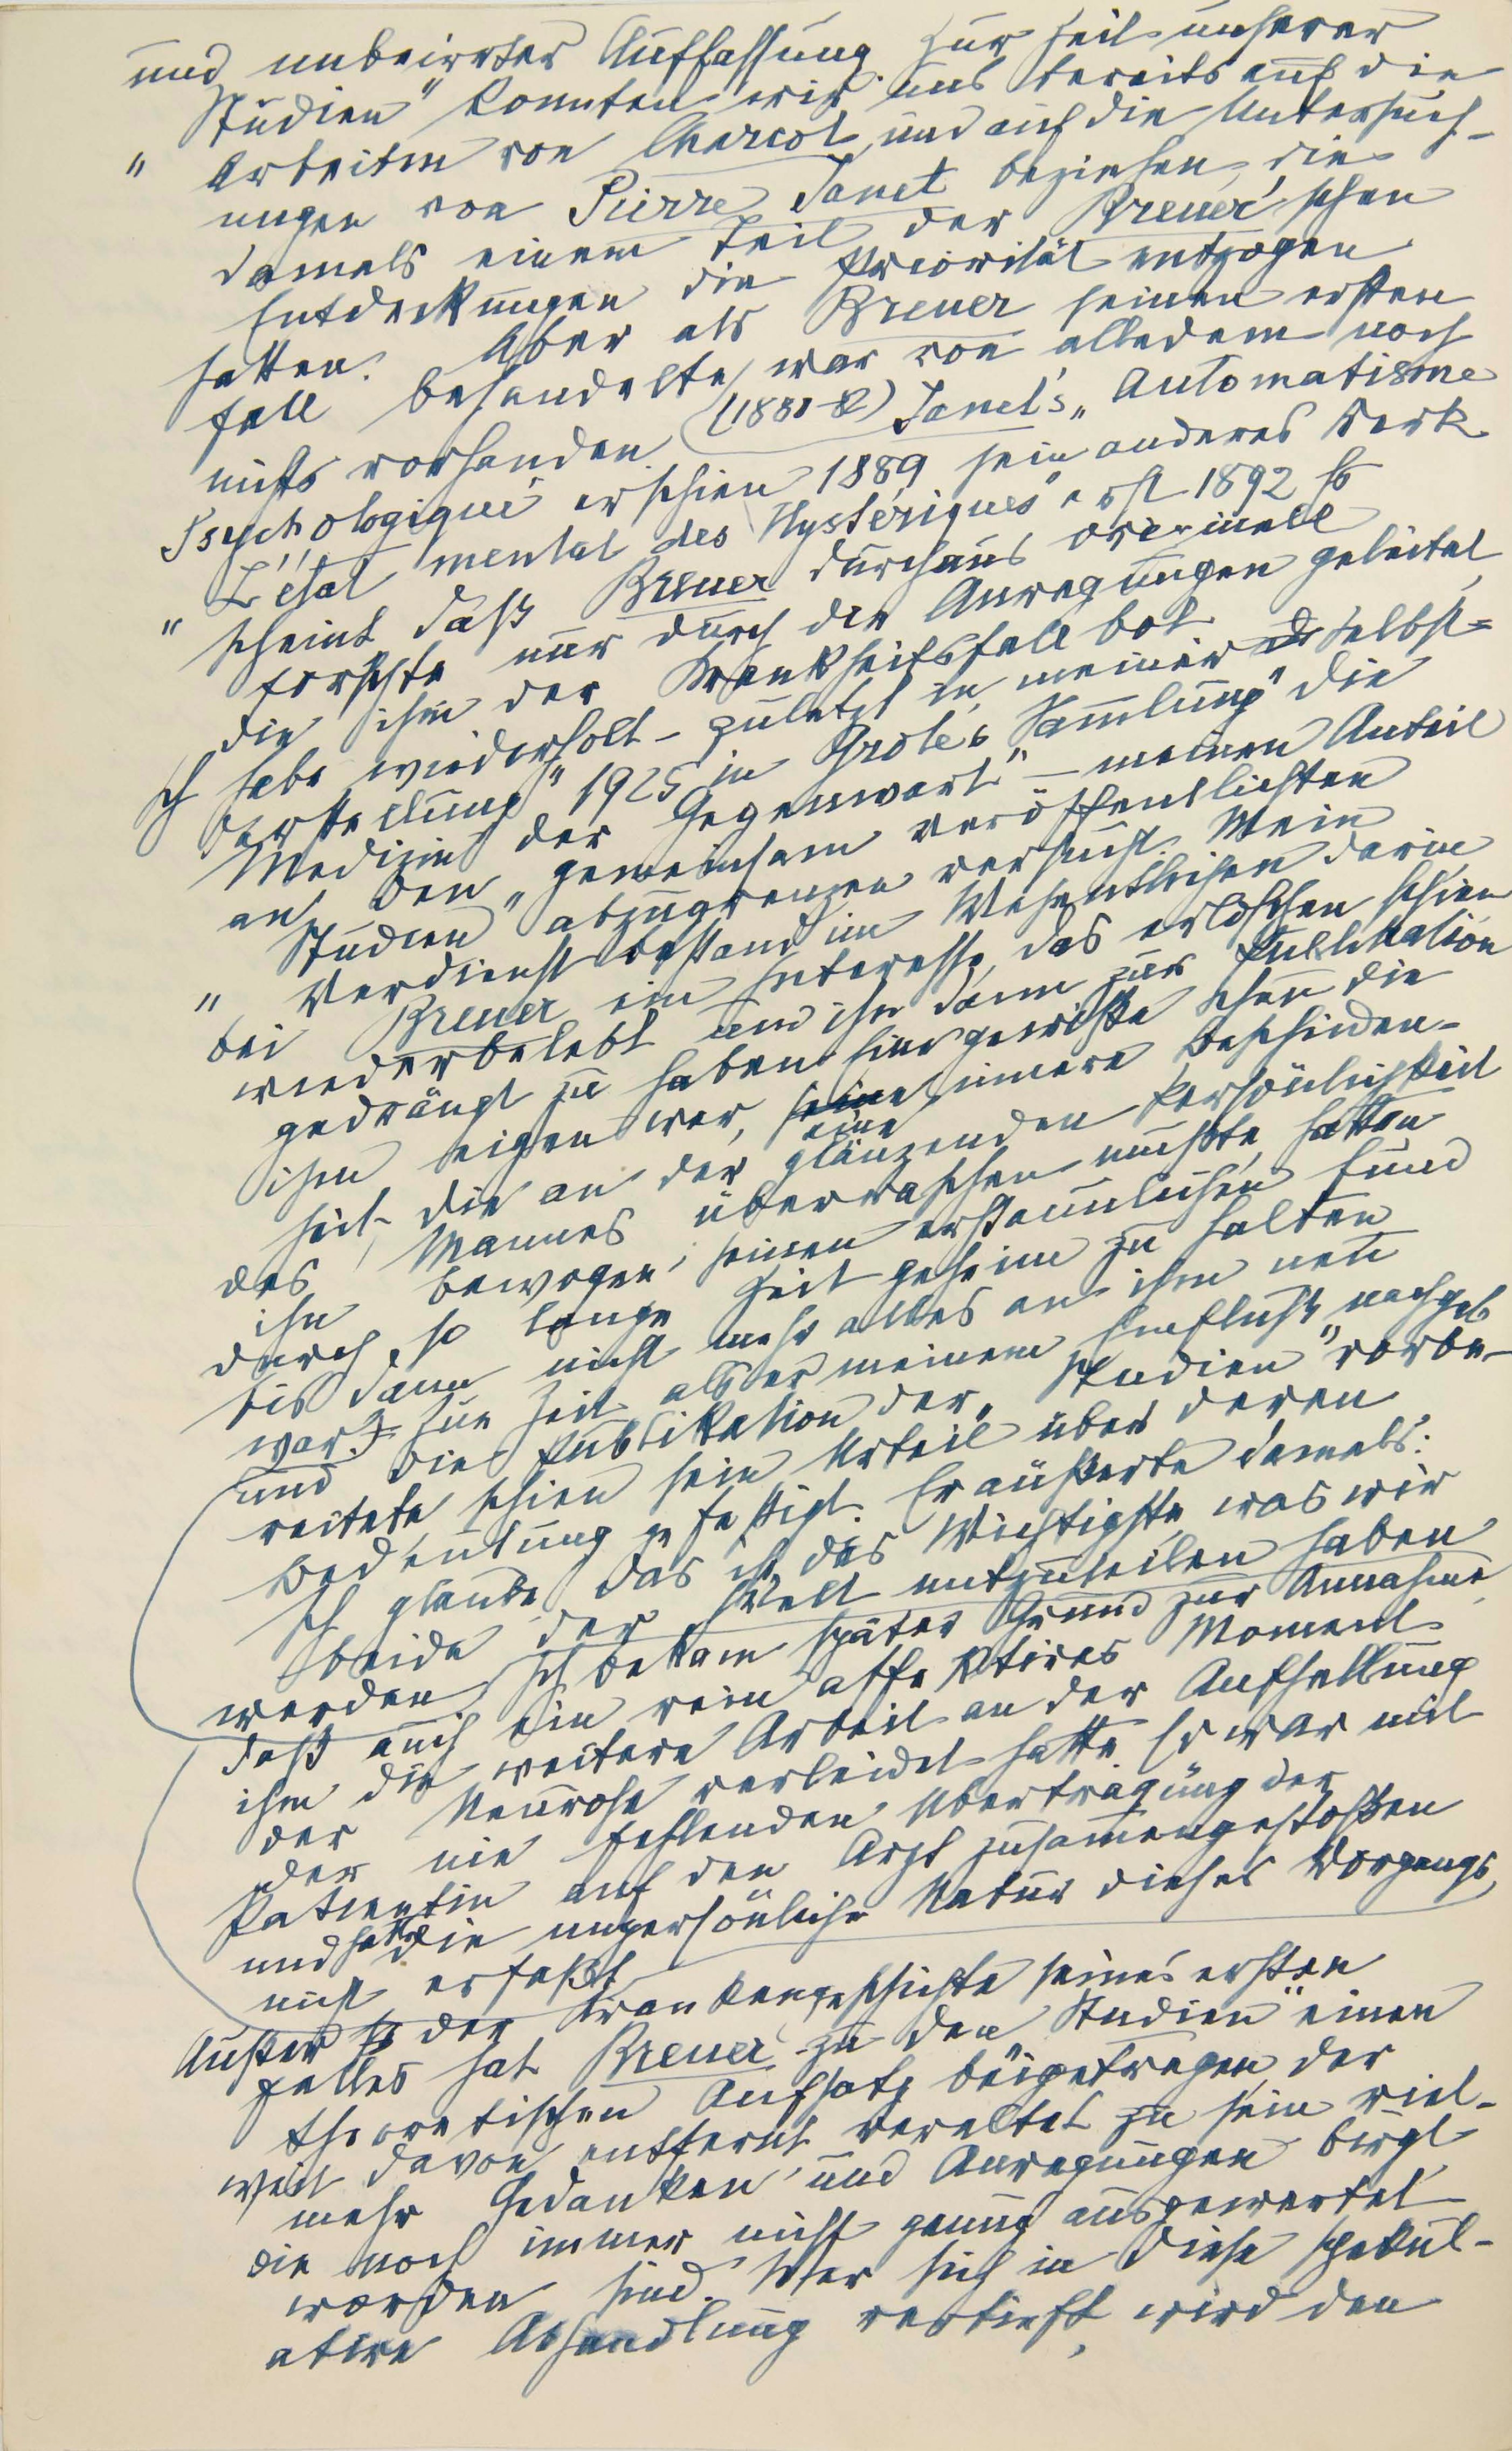 und unbeirrter Auffassung. Zur Zeit unserer
„Studien“ konnten wir uns bereits auf die
Arbeiten von Charcot und auf die Untersuch-
ungen von Pierre Janet beziehen, die
damals einem Teil der Breuer'schen
Entdeckungen die Priorität entzogen
hatten. Aber als Breuer seinen ersten
Fall behandelte, war von alledem noch
nichts vorhanden. (1881-82) Janet's „Automatisme
Psychologique“ erschien 1889 sein anderes Werk
„L'état mental des Hystériques“ erst 1892 Es
scheint daß Breuer durchaus originell
forschte nur durch die Anregungen geleitet,
die ihm der Krankheitsfall bot.
Ich habe wiederholt – zuletzt in meiner Selbst=
darstellung“ 1925 in Grote's Sammlung „Die
Medizin der Gegenwart“ – meinen Anteil
an den gemeinsam veröffentlichten
„Studien“ abzugrenzen versucht. Mein
Verdienst bestand im Wesentlichen darin
bei Breuer ein Interesse, das erloschen schien
wiederbelebt und ihn dann zur Publikation
gedrängt zu haben. Eine gewisse Scheu die
ihm eigen war, eine innere Bescheiden-
heit, die an der glänzenden Persönlichkeit
des Mannes überraschen mußte, hatten
ihn bewogen, seinen erstaunlichen Fund
durch so lange Zeit geheim zu halten
bis dann nicht mehr alles an ihm neu
war. Zur Zeit als er meinem Einfluß nachgab
und die Publikation der „Studien“ vorbe-
reitete, schien sein Urteil über deren
Bedeutung gefestigt. Er äußerte damals:
Ich glaube, das ist das Wichtigste, was wir
beide der Welt mitzuteilen haben
werden. Ich bekam später Grund zur Annahme,
daß auch ein rein affektives Moment
ihm die weitere Arbeit an der Aufhellung
der Neurose verleidet hatte. Er war mit
der nie fehlenden Übertragung der
Patientin auf den Arzt zusammengestoßen
und hatte die unpersönliche Natur dieses Vorgangs
nicht erfaßt.
Außer der Krankengeschichte seines ersten
Falles hat Breuer zu den „Studien“ einen
theoretischen Aufsatz beigetragen, der
weit davon entfernt veraltet zu sein viel-
mehr Gedanken und Anregungen birgt
die noch immer nicht genug ausgewertet
worden sind. Wer sich in diese spekul-
ative Abhandlung vertieft, wird den